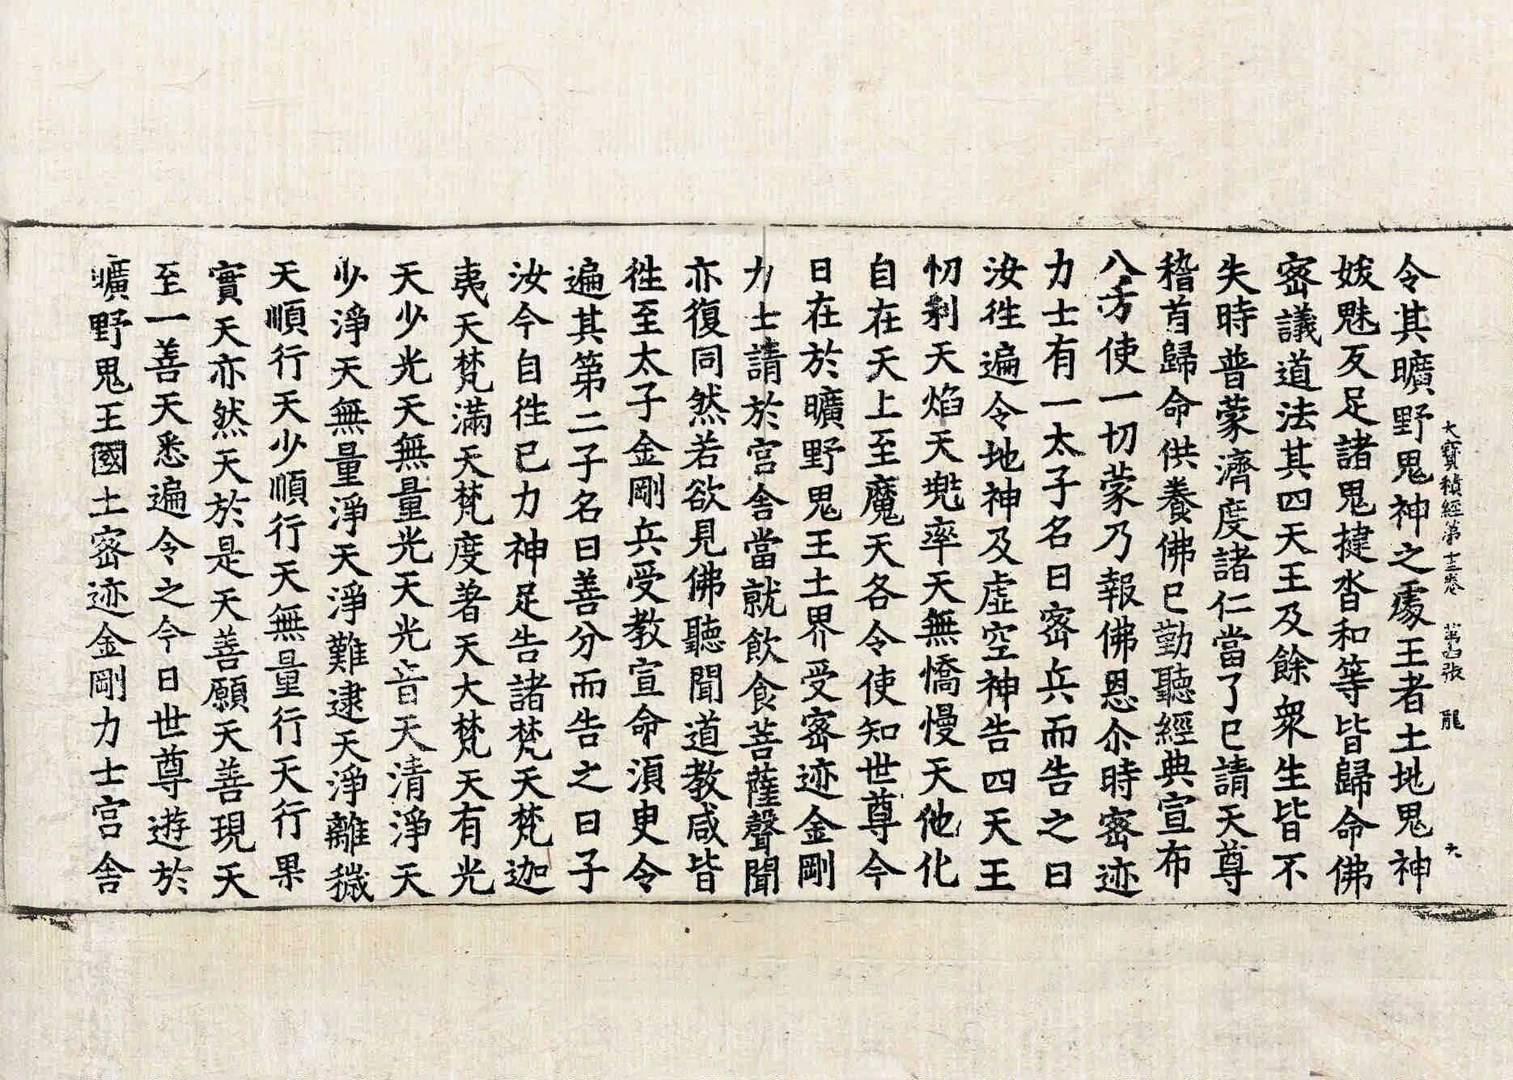 大寶積經第十三卷 張 龍
令其曠野鬼神之處王者土地鬼神
妭魅反足諸鬼揵沓和等皆歸命佛
密議道法其四天王及餘衆生皆不
失時普蒙濟度諸仁當了已請天尊
稽首歸命供養佛已勤聽經典宣布
八方使一切蒙乃報佛恩尒時密迹
力士有一太子名曰密兵而告之曰
汝徃遍令地神及虛空神告四天王
忉利天焰天兜率天無憍慢天他化
自在天上至魔天各令使知世尊今
日在於曠野鬼王土界受密迹金剛
力士請於宮舍當就飲食菩薩聲聞
亦復同然若欲見佛聽聞道教咸皆
徃至太子金剛兵受教宣命須臾令
遍其第二子名曰善分而告之曰子
汝今自徃已力神足告諸梵天梵迦
夷天梵滿天梵度著天大梵天有光
天少光天無量光天光音天清淨天
少淨天無量淨天淨難逮天淨離穢
天順行天少順行天無量行天行果
實天亦然天於是天善願天善現天
至一善天悉遍令之今日世尊遊於
曠野鬼王國土密迹金剛力士宮舍